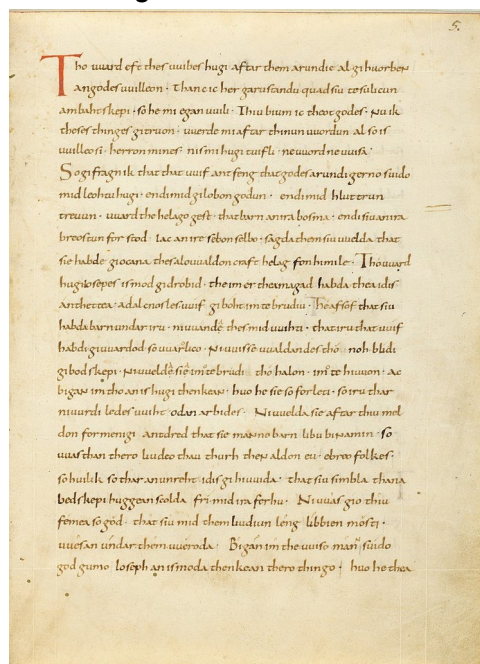 5.
Tho uuard eft thes uuibes hugi aftar them arundie al gihuorben
an godes uuilleon · Than ic her garu standu quad siu te sulicun
ambahtskepi · so he mi egan uuili · Thiu bium ic theotgodes · Nu ik
theses thinges gitruon · uuerde mi aftar thinun uuordun al so is
uuilleo si · herron mines · nis mi hugi tuifli · ne uuord ne uuisa ·
So gifragn ik that that uuif antfeng that godes arundi gerno suido
mid leohtu hugi · endi mid gilobon godun · endi mid hluttrun
treuun · uuard the helago gest · that barn an ira bosma · endi siu an ira
breostun forstod · iac an ire sebon selbo · sagda them siu uuelda that
sie habde giocana thes alouualdon craft helag fon himile · Tho uuard
hugi iosepes is mod gidrobid · the im er thea magad habda thea idis
anthettea · adalcnosles uuif giboht im te brudiu · He afsof that siu
habda barn undar iru · ni uuande thes mid uuihti · that iru that uuif
habdi giuuardod so uuarlico · Ni uuisse uualdandes tho noh blidi
gibodskepi · Ni uuelde sie im te brudi tho halon · im te hiuuon · ac
bigan im tho an is hugi thenkean · huo he sie so forleti · so iru thar
ni uurdi ledes uuiht odan arbides · Ni uuelda sie aftar thiu mel
don for menigi · antdred that sie manno barn libu binamin · so
uuas than thero liudeo thau thurh then aldon eu · ebreo folkes ·
so huilik so thar an unreht idis gihiuuida · that siu simbla thana
bedskepi buggean scolda fri mid ira ferhu · Ni uuas gio thiu
femea so god · that siu mid them liudiun leng libbien mosti ·
uuesan undar them uueroda · Bigan im the uuiso man suido
god gumo Ioseph an is moda thenkean thero thingo · huo he thea